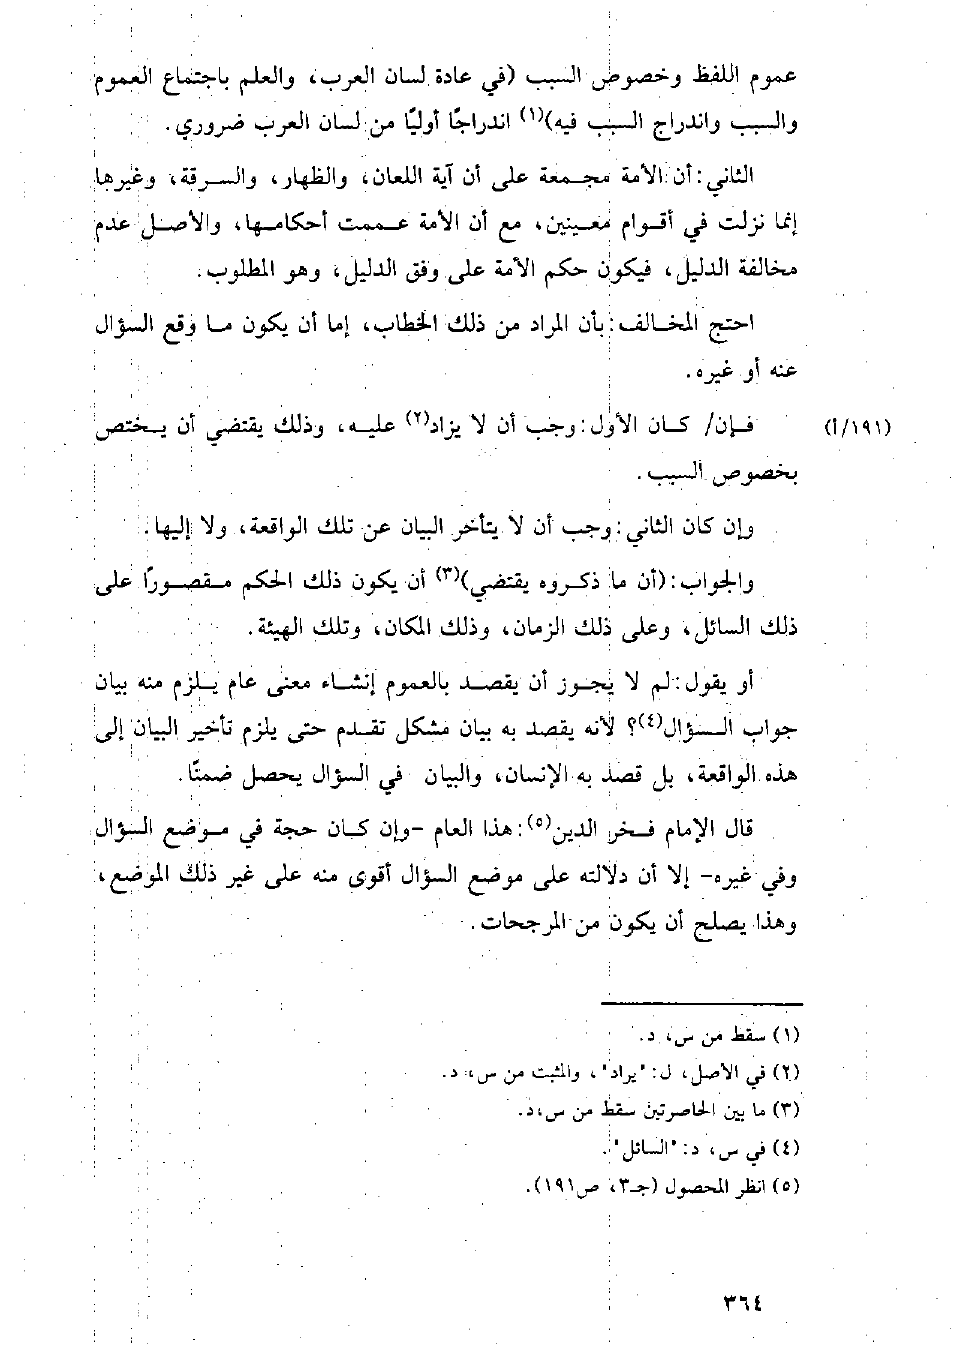 عموم اللفظ وخصوص السبب (في عادة لسان العرب، والعلم باجتماع العموم
والسبب واندراج السبب فيه)(١) اندراجًا أوليًا من لسان العرب ضروري.
الثاني: أن الأمة مجمعة على أن آية اللعان، والظهار، والسرقة، وغيرها
إنما نزلت في أقوام معينين، مع أن الأمة عممت أحكامها، والأصل عدم
مخالفة الدليل، فيكون حكم الأمة على وفق الدليل، وهو المطلوب.
احتج المخالف: بأن المراد من ذلك الخطاب، إما أن يكون ما وقع السؤال
عنه أو غيره.
(١٩١/أ) فإن/ كان الأول: وجب أن لا يزاد(٢) عليه، وذلك يقتضي أن يختص
بخصوص السبب.
وإن كان الثاني: وجب أن لا يتأخر البيان عن تلك الواقعة، ولا إليها.
والجواب: (أن ما ذكروه يقتضي)(٣) أن يكون ذلك الحكم مقصورًا على
ذلك السائل، وعلى ذلك الزمان، وذلك المكان، وتلك الهيئة.
أو يقول: لم لا يجوز أن يقصد بالعموم إنشاء معنى عام يلزم منه بيان
جواب السؤال(٤)؟ لأنه يقصد به بيان مشكل تقدم حتى يلزم تأخير البيان إلى
هذه الواقعة، بل قصد به الإنسان، والبيان في السؤال يحصل ضمنًا.
قال الإمام فخر الدين(٥): هذا العام -وإن كان حجة في موضع السؤال
وفي غيره- إلا أن دلالته على موضع السؤال أقوى منه على غير ذلك الموضع،
وهذا يصلح أن يكون من المرجحات.
(١) سقط من س، د.
(٢) في الأصل، ل: "يراد"، والمثبت من س، د.
(٣) ما بين الحاصرتين سقط من س،د.
(٤) في س، د: "السائل".
(٥) انظر المحصول (جـ٣، ص١٩١).
٣٦٤